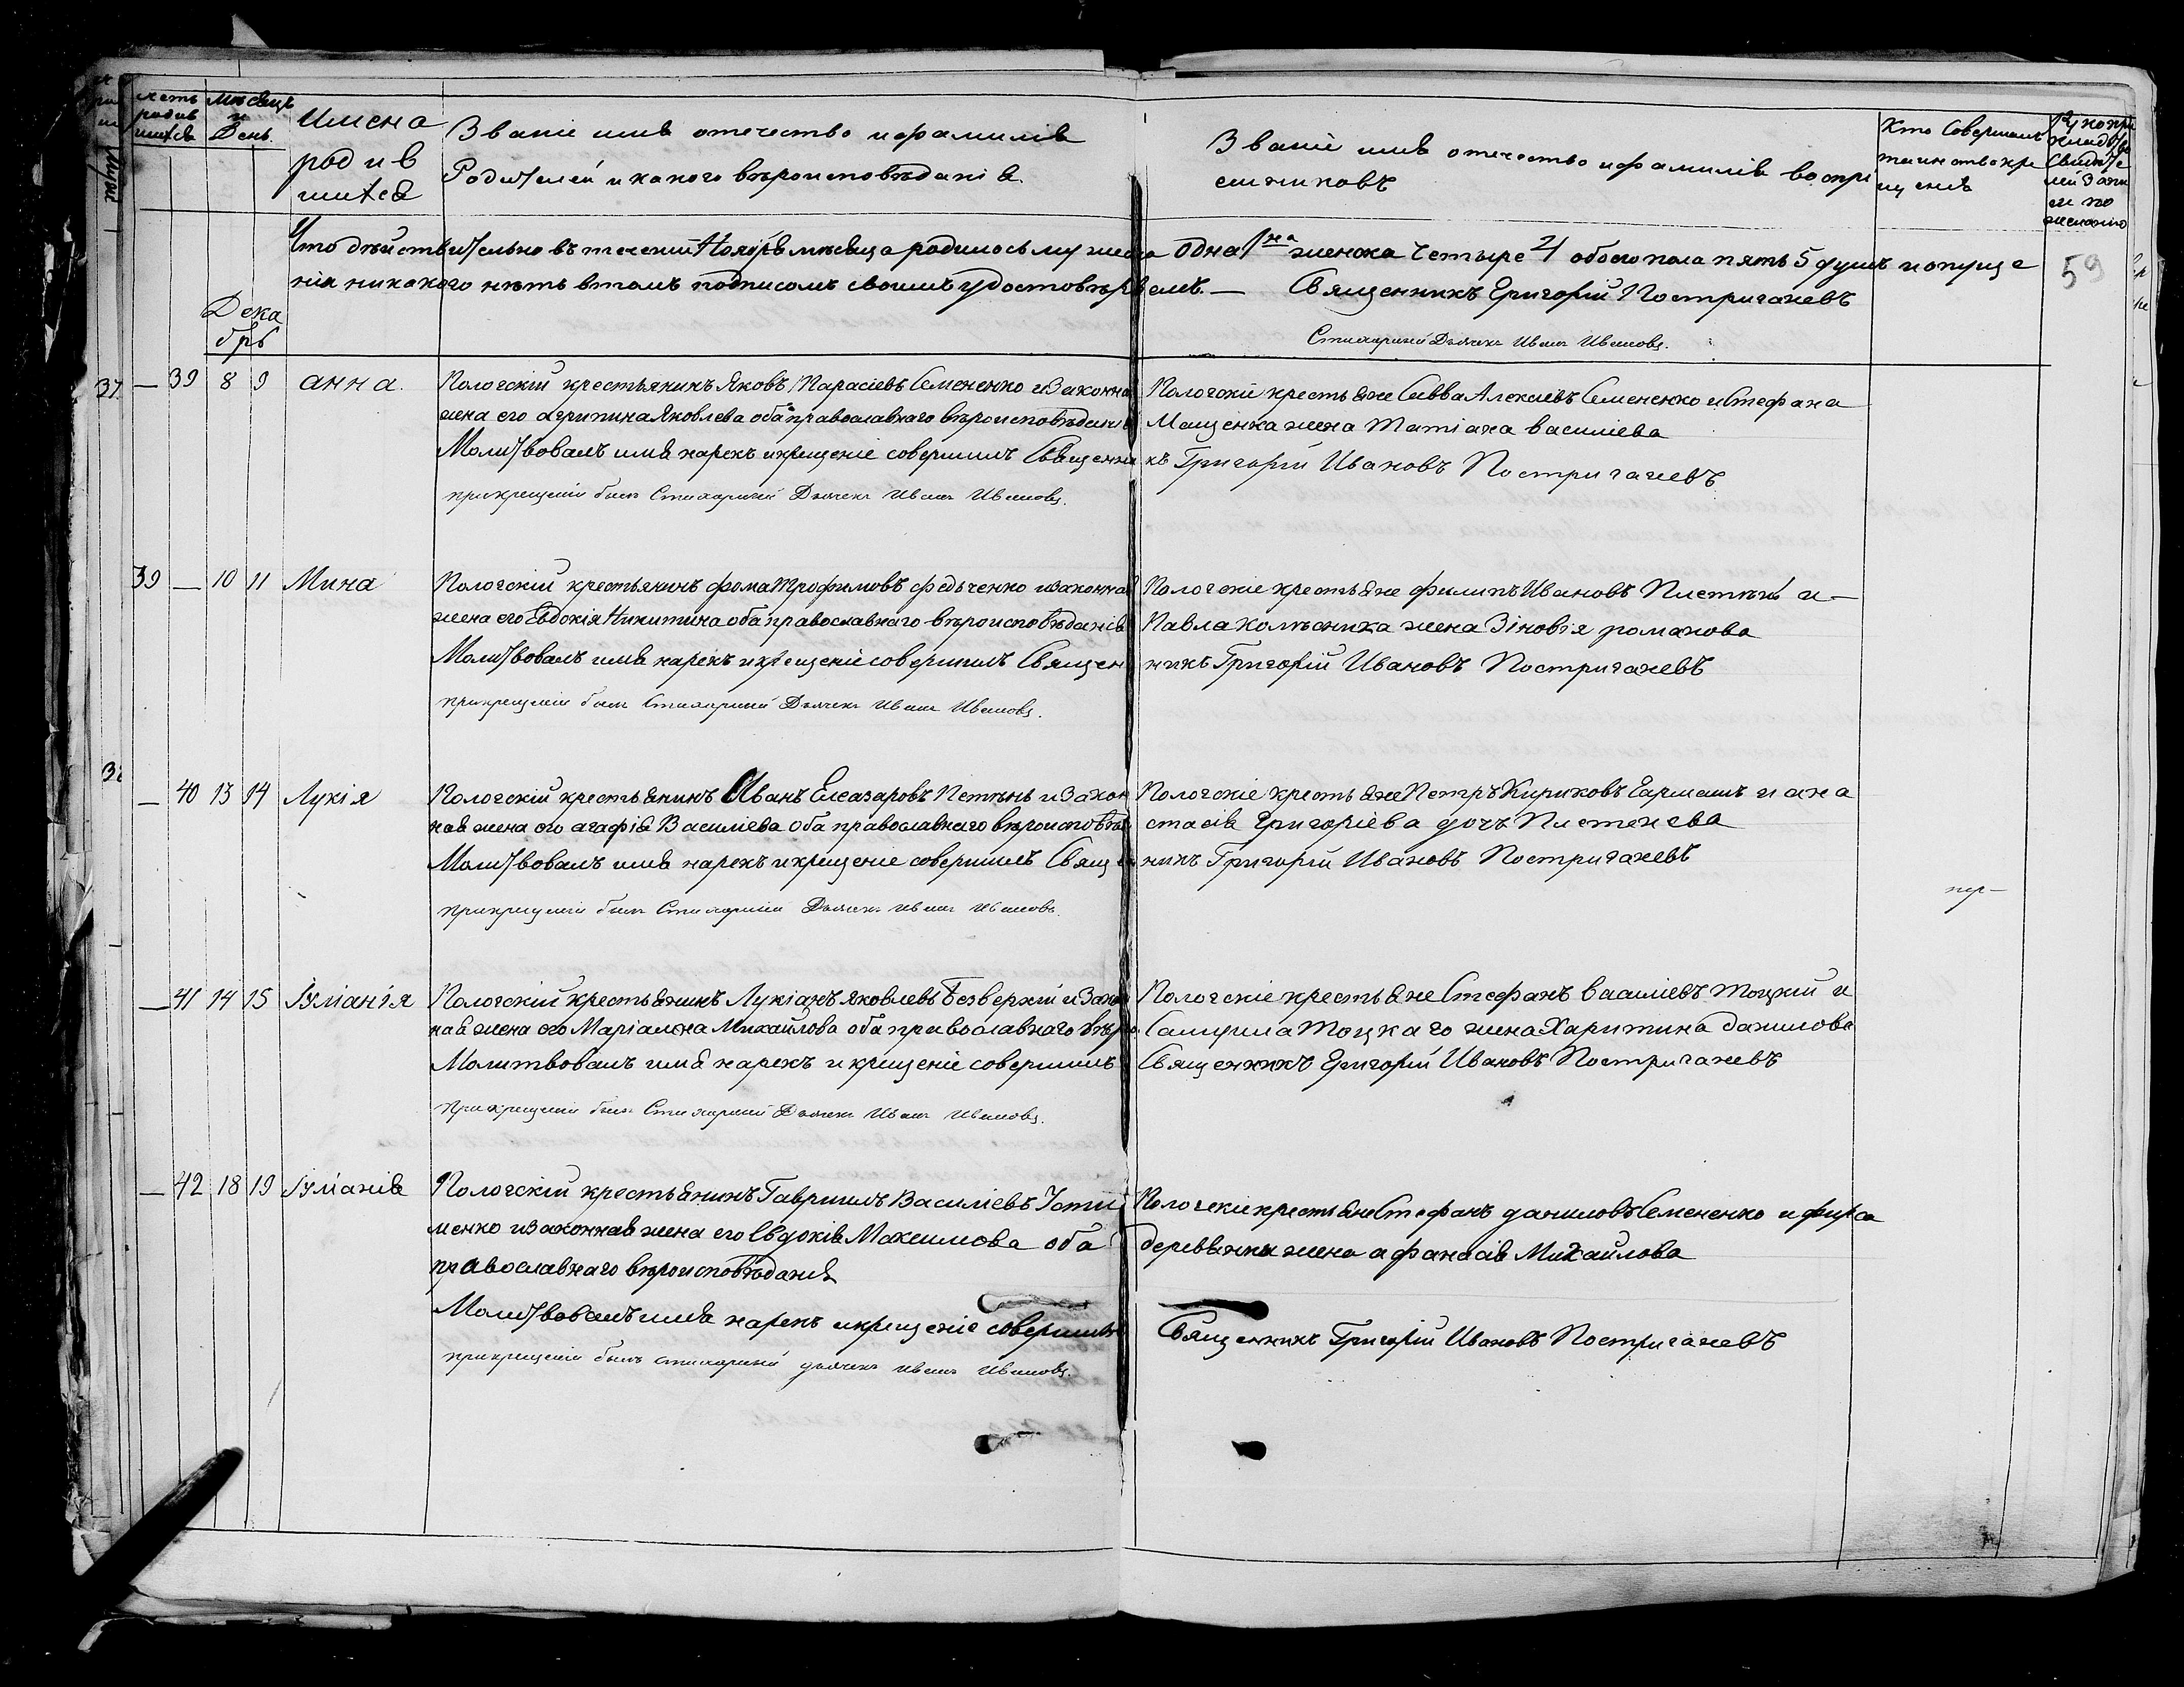 Мѣсяцъ
и
День.
Имена
родив
шихся
Званіе имя отечество и фамилія
Родителей и какого вѣроисповѣданія.
Званіе имя отечество и фамилія воспрі
емниковъ
Кто Совершалъ
таинство кре
щенія
Что дѣйствительно въ теченіи Ноября мѣсяца родилось муже одна 1на женска Четыре 4 обоего пола пять 5 душъ и опуще
нія никакого нѣтъ втомъ подписомъ своимъ удостовѣряемъ. — Священникъ Григорій Постригачевъ
Стихарный Дьячекъ Иванъ Ивановъ.
59
Дека
брь
37
— 39 8 9 анна. Пологскій крестьянинъ Яковъ Парасіевъ Семененко и Законная
жена его агрипина Яковлева оба православнаго вѣроисповѣданія
Молитвовалъ имя нарекъ и крещеніе совершилъ Священни
прикрещеніи былъ Стихарный Дьячекъ Иванъ Ивановъ.
Пологскіе крестьяне Савва Алексіевъ Семененко и Стефана
Мащенка жена Татіана василіева
къ Григорій Ивановъ Постригачевъ
39 — 10 11 Мина Пологскій крестьянинъ фома Трофимовъ федченко и законная
жена его Евдокія Никитина оба православнаго вѣроисповѣданія
Молитвовалъ имя нарекъ и крещеніе совершилъ Священ
прикрещеніи былъ Стихарный Дьячекъ Иванъ Ивановъ.
Пологскіе крестьяне филипъ Ивановъ Плетѣнь и —
Павла колѣсника жена Зіновія романова
никъ Григорій Ивановъ Постригачевъ
— 40 13 14 Лукія Пологскій крестьянинъ Иванъ Елеазаровъ Петѣнь и Закон
ная жена его агафія Василіева оба православнаго вѣроисповѣд
Молитвовалъ имя нарекъ и крещеніе совершилъ Свящ
прикрещеніи былъ Стихарный Дьячекъ Иванъ Ивановъ.
Пологскіе крестьяне Петръ Кириковъ Гармашъ и ана
стасія Григоріева дочь Плетенева
никъ Григорій Ивановъ Постригачевъ
— 41 14 15 Іуліанія Пологскій крестьянинъ Лукіанъ Яковлевъ Безверхій и Закон
ная жена его Маріамна Михайлова оба православнаго вѣро
Молитвовалъ имя нарекъ и крещеніе совершилъ
прикрещеніи былъ Стихарный Дьячекъ Иванъ Ивановъ.
Пологскіе крестьяне Стефанъ василіевъ Тоцкій и
Самуила Тоцкаго жена Харитина данилова
Священникъ Григорій Ивановъ Постригачевъ
— 42 18 19 Іуліанія Пологскій крестьянинъ Гавріилъ Василіевъ Усти
менко и законная жена его Евдокія Максимова оба
православнаго вѣроисповѣданія
Молитвовалъ имя нарекъ и крещеніе совершилъ
прикрещеніи былъ стихарный дьячекъ иванъ Ивановъ.
Пологскіе крестьяне Стефанъ даниловъ Семененко и фирса
деревянки жена афанасія Михайлова
Священникъ Григорій Ивановъ Постригачевъ